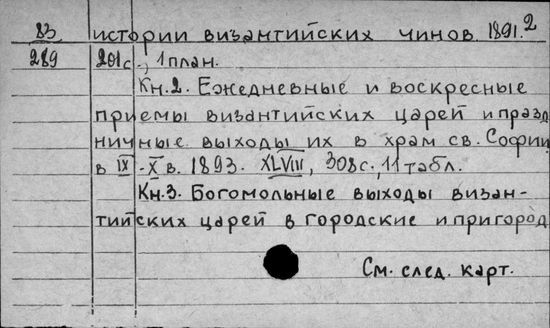 83 истории византийских чинов. 1891. 2
289 201с., 1 план.
Кн.2. Ежедневные и воскресные
приемы византийских царей и празд
ничные выходы их в храм св. Софии
в IX-X в. 1893. XLVIII, 308с., 11 табл.
Кн.3. Богомольные выходы визан-
тийских царей в городские и пригород
См. след. карт.